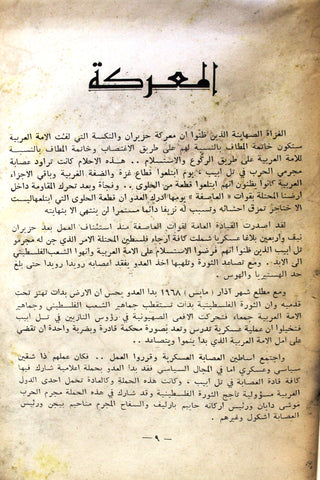 المعركة
الغزاة الصهاينة الذين ظنوا ان معركة حزيران والنكسة التي لفت الامة العربية
ستكون خاتمة المطاف بالنسبة لهم على طريق الاغتصاب وخاتمة المطاف بالنسبة
للامة العربية على طريق الركوع والاستسلام .. هذه الاحلام كانت تراود عصابة
مجرمي الحرب في تل ابيب ، يوم ابتلعوا قطاع غزة والضفة الغربية وباقي الاجزاء
العربية كانوا يظنون انهم ابتلعوا قطعة من الحلوى .. وفجأة وبعد تحرك المقاومة داخل
ارضنا المحتلة بقوات « العاصفة » يومها ادرك العدو ان قطعة الحلوى التي ابتلعها ليست
الا خناجر تمزق احشائه وتسبب له نزيفا دائما مستمرا لن ينتهي الا بنهايته
لقد اصدرت القيادة العامة لقوات العاصفة منذ استئناف العمل بعد حزيران
نيف واربعين بلاغا عسكريا شملت كافة ارجاء فلسطين المحتلة الامر الذي جن له مجرمو
تل ابيب الذين ظنوا انهم فرضوا الاستسلام على الامة العربية وانهوا الشعب الفلسطيني
الى الابد .. ومع تصاعد الثورة وتلهبها اخذ العدو يفقد اعصابه رويدا رويدا حتى بلغ
حد الهستيريا والهوس .
ومع مطلع شهر آذار ( مارس ) ١٩٦٨ بدا العدو يحس ان الارض بدات تهتز تحت
قدميه وان الثورة الفلسطينية بدات تستقطب جماهير الشعب الفلسطيني وجماهير
الامة العربية جمعاء فتحركت الافعى الصهيونية في رؤوس النازيين في تل ابيب
فتخيلوا ان عملية عسكرية تدرس وتعد بصورة محكمة قادرة وبضربة واحدة ان تقضي
على امل الامة العربية الذي بدا ينمو ويتصاعد ..
واجتمع اساطين العصابة العسكرية وقرروا العمل .. فكان عملهم ذا شقين
سياسي وعسكري اما في المجال السياسي فقد بدا العدو بحملة اعلامية شارك فيها
كافة قادة العصابة في تل ابيب ، وكانت هذه الحملة وكالعادة تحمل احدى الدول
العربية مسؤولية تاجج الثورة الفلسطينية وقد شارك في هذه الحملة مجرم الحرب
موشى دايان ورئيس اركانه حاييم بارليف والسفاح المجرم مناحيم بيجن ورئيس
العصابة اشكول وغيرهم .
— ٩ —